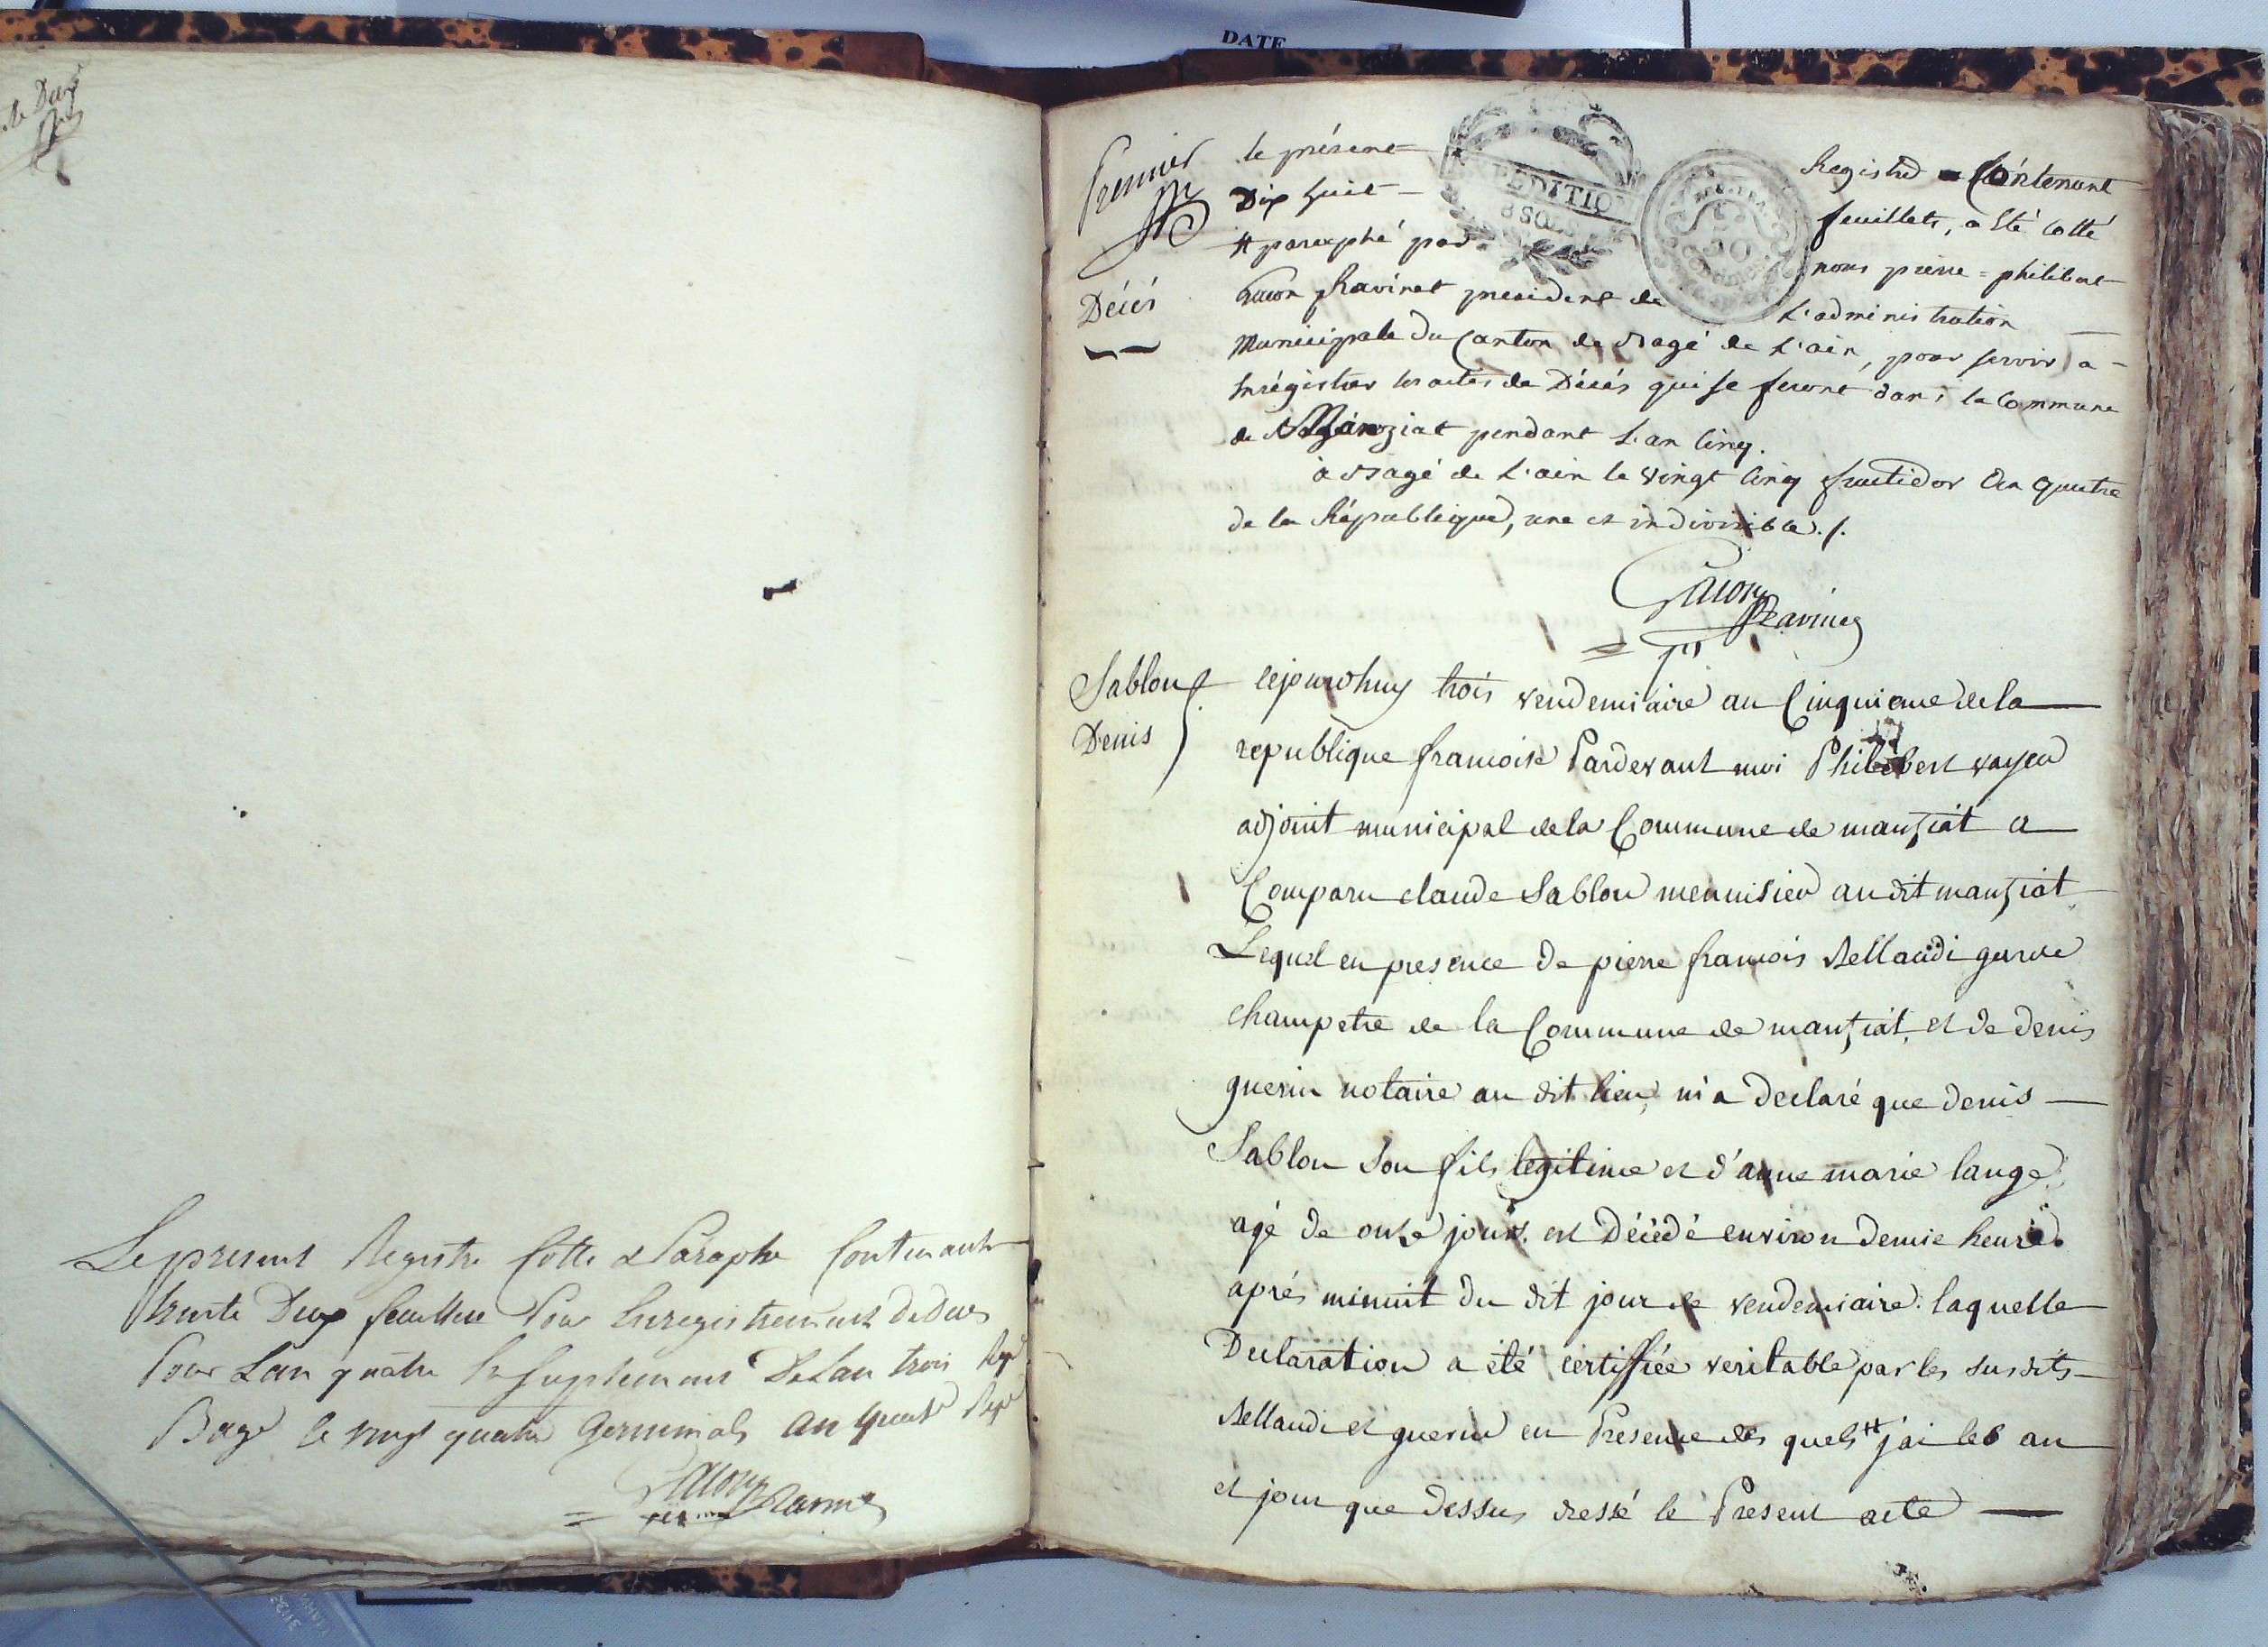 DATE
Le present Registre Cotte & Paraphe Contenant
trente Deux feuillets Pour Enregistrement de Deces
Pour Lan quatre
Bagé le vingt quatre Germinal an quatre
Premier
Décés
le présent Registre Contenant
Dix huit feuillets, a été Cotté
paraphé par nous pierre = philibert
président de L'administration
Municipale du Canton de Bagé de L'ain, pour servir a
Enrégistrer les actes de Décés qui se feront dans la Commune
de Manziat pendant L'an Cinq.
à Bagé de L'ain le vingt Cinq fructidor an quatre
de la République, une et indivisible ./.
EXPEDITION
8 SOLS
Sablon
Denis
Cejourdhuy trois vendemiaire an Cinquieme de la
republique francoise Pardevant moi Philibert
adjoint municipal de la Commune de manziat a
Comparu claude Sablon menuisier au dit manziat
Lequel en presence de pierre francois garde
champetre de la Commune de manziat, et de denis
guerin notaire au dit lieu, m'a declaré que denis
Sablon Son fils legitime et d'anne marie lange
agé de onze jours. est Décédé environ demie heure
aprés minuit du dit jour de vendemiaire. laquelle
Declaration a été certiffiée veritable par les susdits
et guerin en Presence des quels j'ai les an
et jour que dessus dressé le Present acte